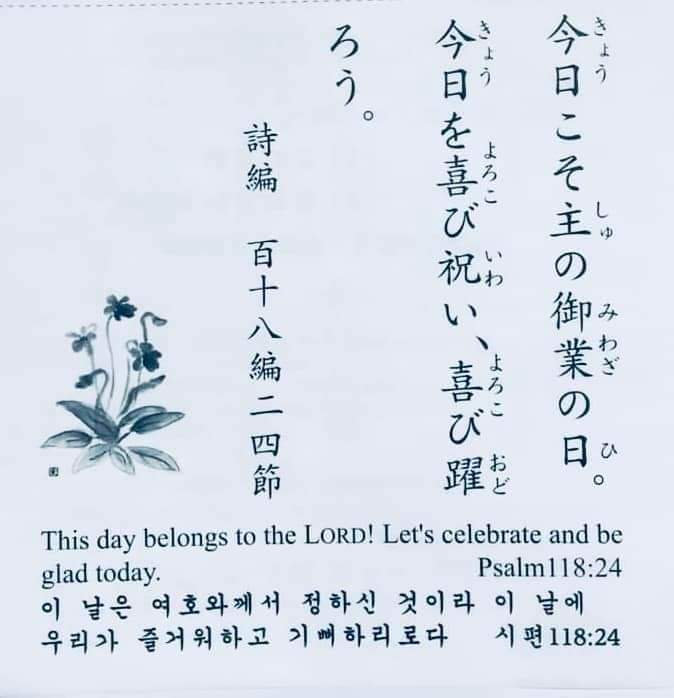 今日こそ主の御業の日。
今日を喜び祝い、喜び躍
ろう。
詩編　百十八編二四節
This day belongs to the LORD! Let's celebrate and be
glad today. Psalm118:24
이 날은 여호와께서 정하신 것이라 이 날에
우리가 즐거워하고 기뻐하리로다 시편118:24